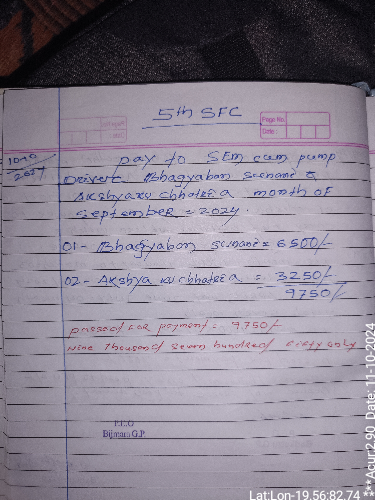 5th SFC
Page No.
Date :
10-10
2024
pay to SEM cum pump
Driver Bhagyaban &
Akshya ku chhatria month of
September = 2024.
01 - Bhagyaban = 6500/-
02 - Akshya ku chhatria = 3250/-
9750/-
passed for payment = 9750/-
Nine thousand seven hundred fifty only
P.E.O
Bijmara G.P.
Lat:Lon-19.56:82.74
***Acur:2.90 Date: 11-10-2024